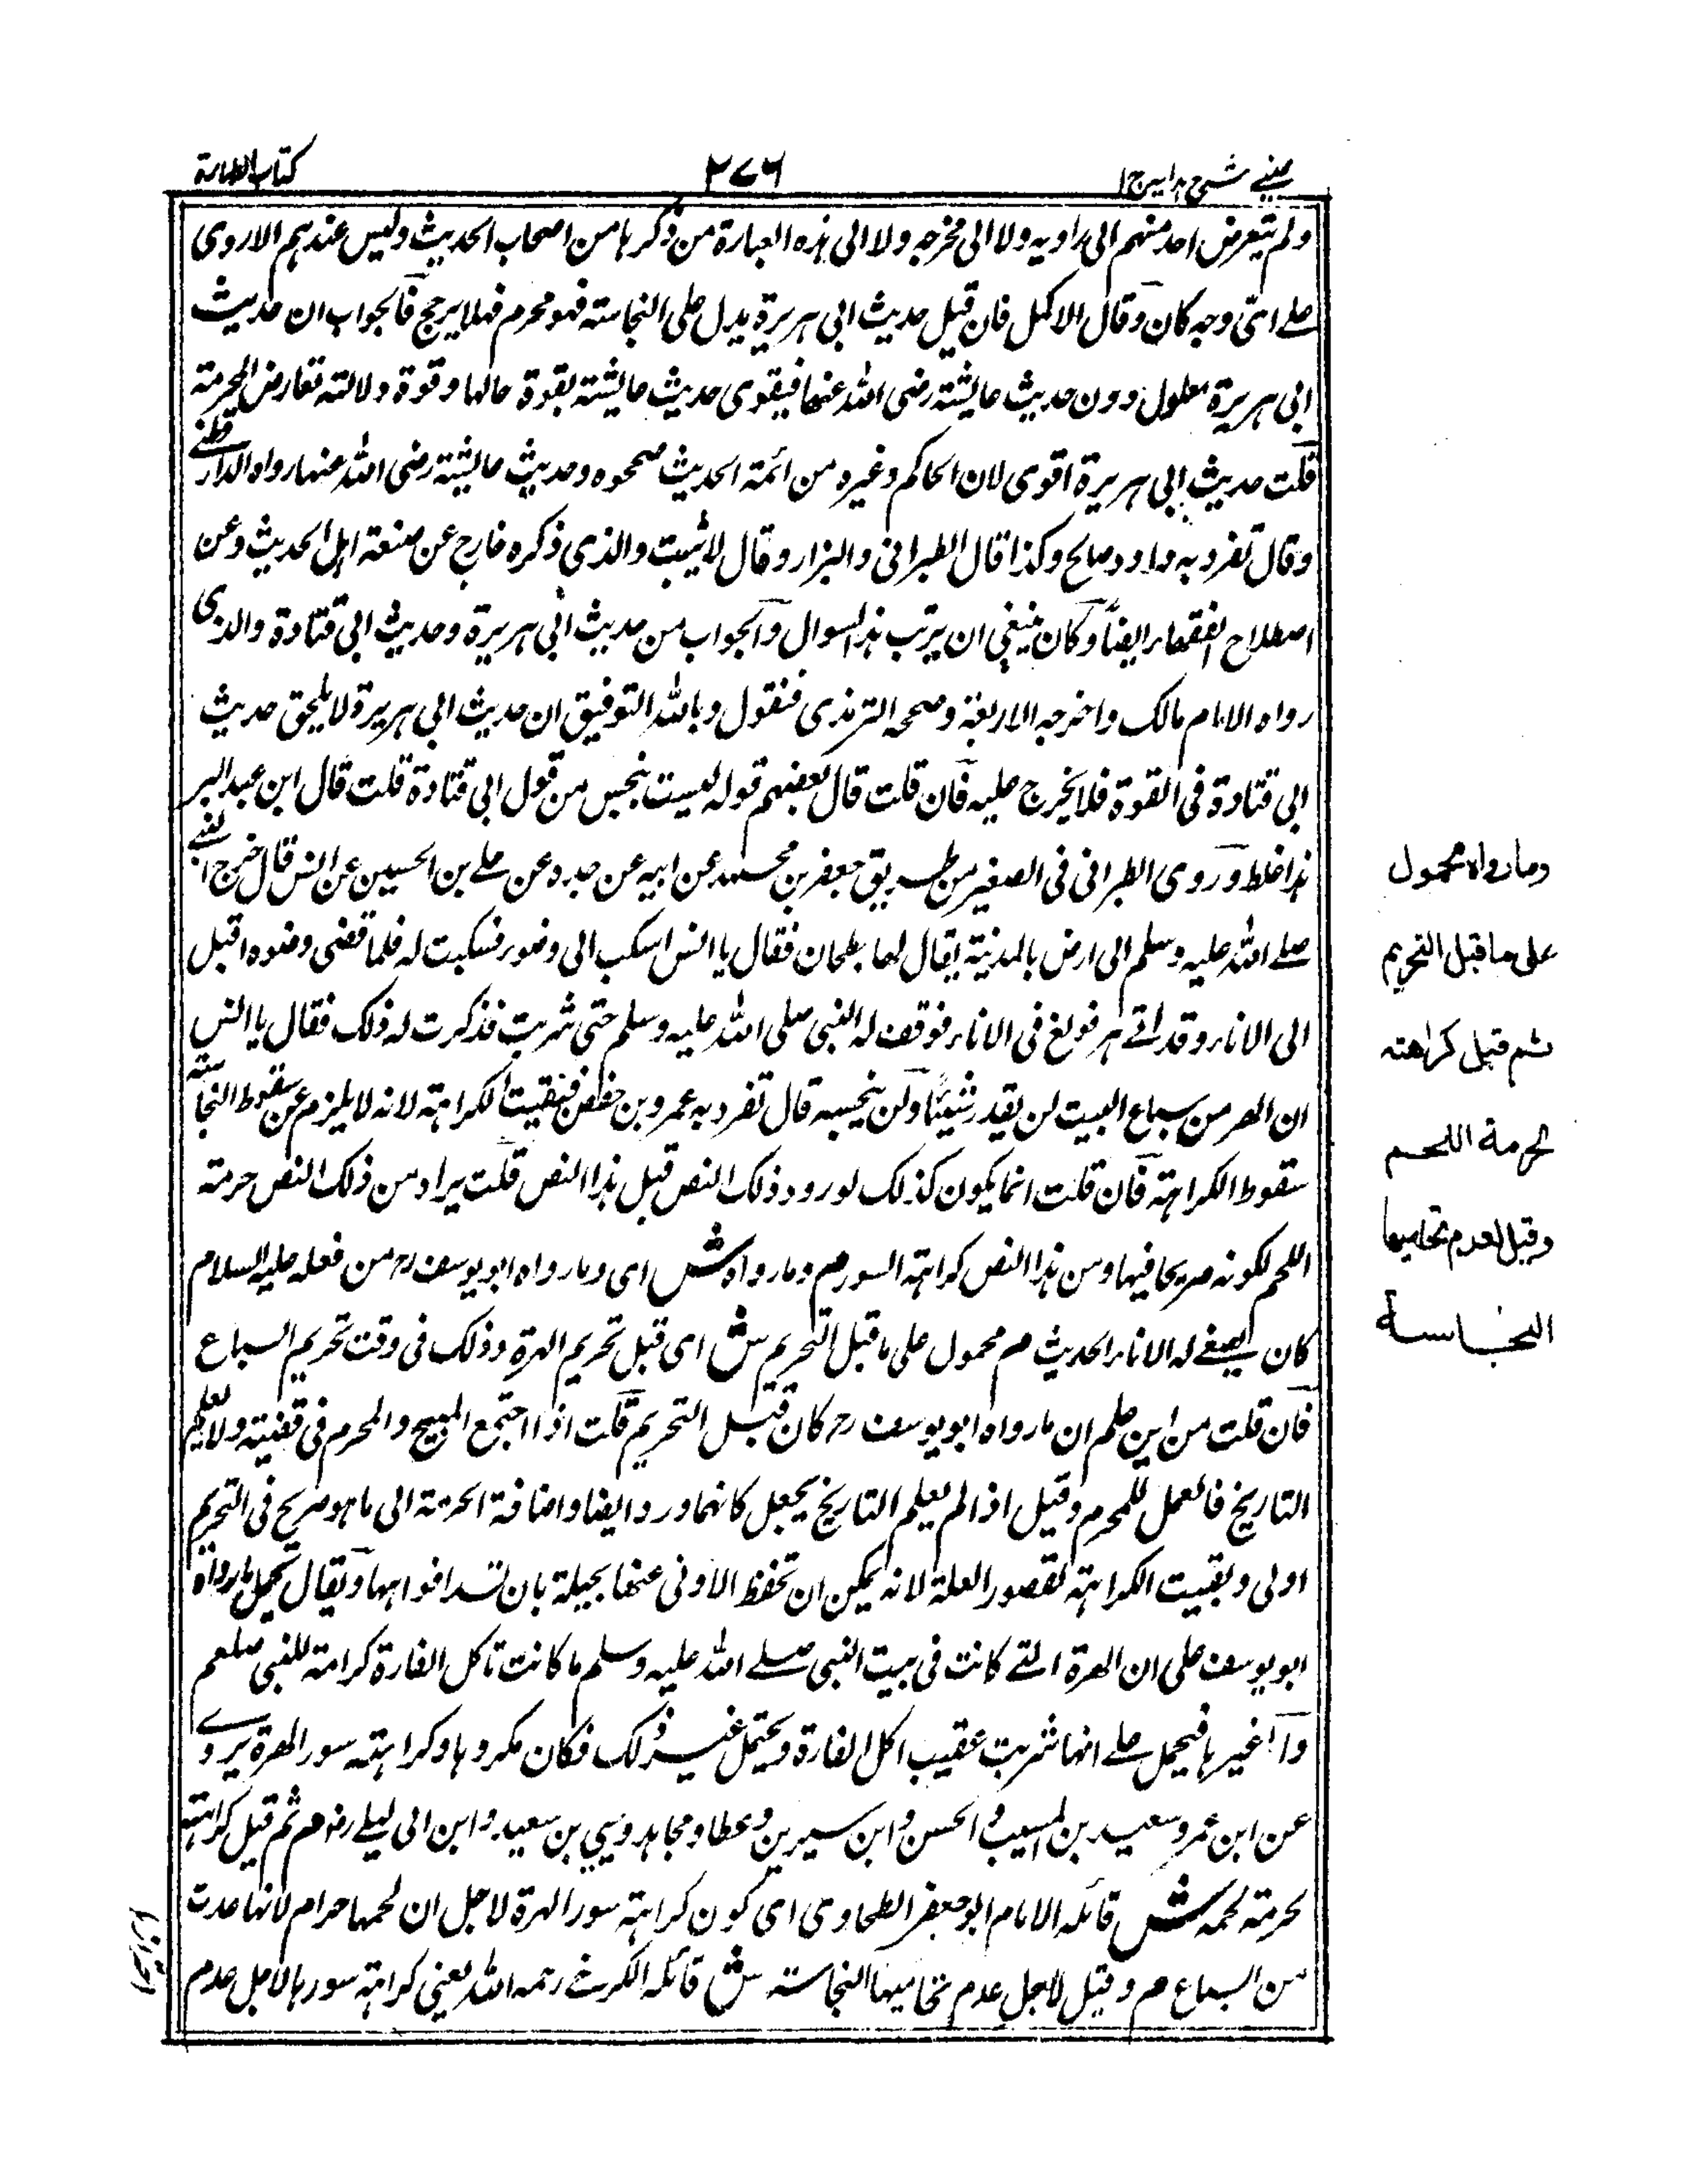 عينى شرح هدايه ج ١
٢٧٦
كتاب الطهارة
ولم يتعرض احد منهم الى راويه ولا الى مخرجه ولا الى هذه العبارة من ذكرها من اصحاب الحديث وليس عندهم الا روى
على اى وجه كان وقال الاكمل فان قيل حديث ابى هريرة يدل على النجاسة فهو محرم فهلا يرجح فالجواب ان حديث
ابى هريرة معلول دون حديث عايشة رضى الله عنها فيقوى حديث عايشة بقوة حالها وقوة دلالته تعارض المحرمة
قلت حديث ابى هريرة اقوى لان الحاكم وغيره من ائمة الحديث صححوه وحديث عايشة رضى الله عنها رواه الدارقطنى
وقال تفرد به داود صالح وكذا قال الطبرانى والبزار وقال لا يثبت والذى ذكره خارج عن صنعة اهل الحديث وعن
اصطلاح الفقهاء ايضا وكان ينبغى ان يرتب هذا السوال والجواب من حديث ابى هريرة وحديث ابى قتادة والذى
رواه الامام مالك واخرجه الاربعة وصححه الترمذى فنقول وبالله التوفيق ان حديث ابى هريرة لا يلحق حديث
ابى قتادة فى القوة فلا يخرج عليه فان قلت قال بعضهم قوله ليست بنجس من قول ابى قتادة قلت قال ابن عبد البر
هذا غلط وروى الطبرانى فى الصغير من طريق جعفر بن محمد عن ابيه عن جده عن على بن الحسين عن انس قال خرج النبى
صلى الله عليه وسلم الى ارض بالمدينة يقال لها بطحان فقال يا انس اسكب الى وضوء فسكبت له فلما قضى وضوه اقبل
الى الاناء وقد اتى هر فولغ فى الاناء فوقف له النبى صلى الله عليه وسلم حتى شربت فذكرت له ذلك فقال يا انس
ان الهر من سباع البيت لن يقذر شيئا ولن ينجسه قال تفرد به عمرو بن حفص فبقيت الكراهة لانه لا يلزم عن سقوط النجاسة
سقوط الكراهة فان قلت انما يكون كذلك لو ورد ذلك النص قبل هذا النص قلت يراد من ذلك النص حرمة
اللحم لكونه صريحا فيها ومن هذا النص كراهة السور م وما رواه ش اى وما رواه ابو يوسف رح من فعله عليه السلام
كان يصغى له الاناء الحديث م محمول على ما قبل التحريم ش اى قبل تحريم الهرة وذلك فى وقت تحريم السباع
فان قلت من اين علم ان ما رواه ابو يوسف رح كان قبل التحريم قلت اذا اجتمع المبيح والمحرم فى قضية ولا يعلم
التاريخ فالعمل للمحرم وقيل اذا لم يعلم التاريخ يجعل كانهما وردا ايضا واضافة الحرمة الى ما هو صريح فى التحريم
اولى وبقيت الكراهة لقصور العلة لانه يمكن ان تحفظ الاوانى عنها بحيلة بان تسد افواهها ويقال تحمل ما رواه
ابو يوسف على ان الهرة التى كانت فى بيت النبى صلى الله عليه وسلم ما كانت تاكل الفارة كرامة للنبى صلعم
واما غيرها فيحمل على انها شربت عقيب اكل الفارة ويحتمل غير ذلك فكان مكروها وكراهة سور الهرة يروى
عن ابن عمر وسعيد بن المسيب والحسن وابن سيرين وعطا ومجاهد ويحيى بن سعيد وابن ابى ليلى رض م ثم قيل كراهته
لحرمة لحمه ش قائله الامام ابو جعفر الطحاوى اى كون كراهة سور الهرة لاجل ان لحمها حرام لانها عدت
من السباع م وقيل لاجل عدم تحاميها النجاسة ش قائله الكرخى رحمه الله يعنى كراهة سورها لاجل عدم
وما رواه محمول
على ما قبل التحريم
ثم قيل كراهته
لحرمة اللحم
وقيل لعدم تحاميها
النجاسة